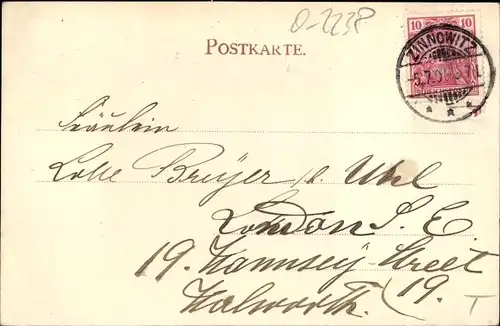 O-2238
10 10
POSTKARTE.
ZINNOWITZ
Fräulein
Lotte Breyer b. Uhl
London S. E.
19. Hamnsey-Street
Walworth. (19.
T